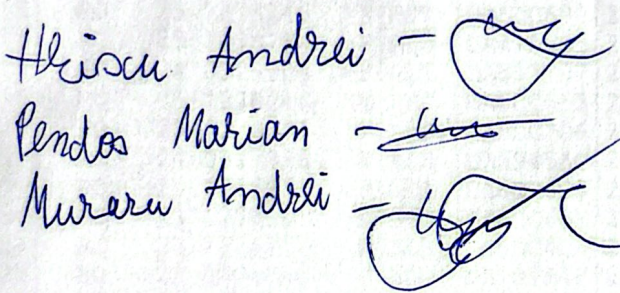 Andrei -
Pendos Marian -
Muraru Andrei -